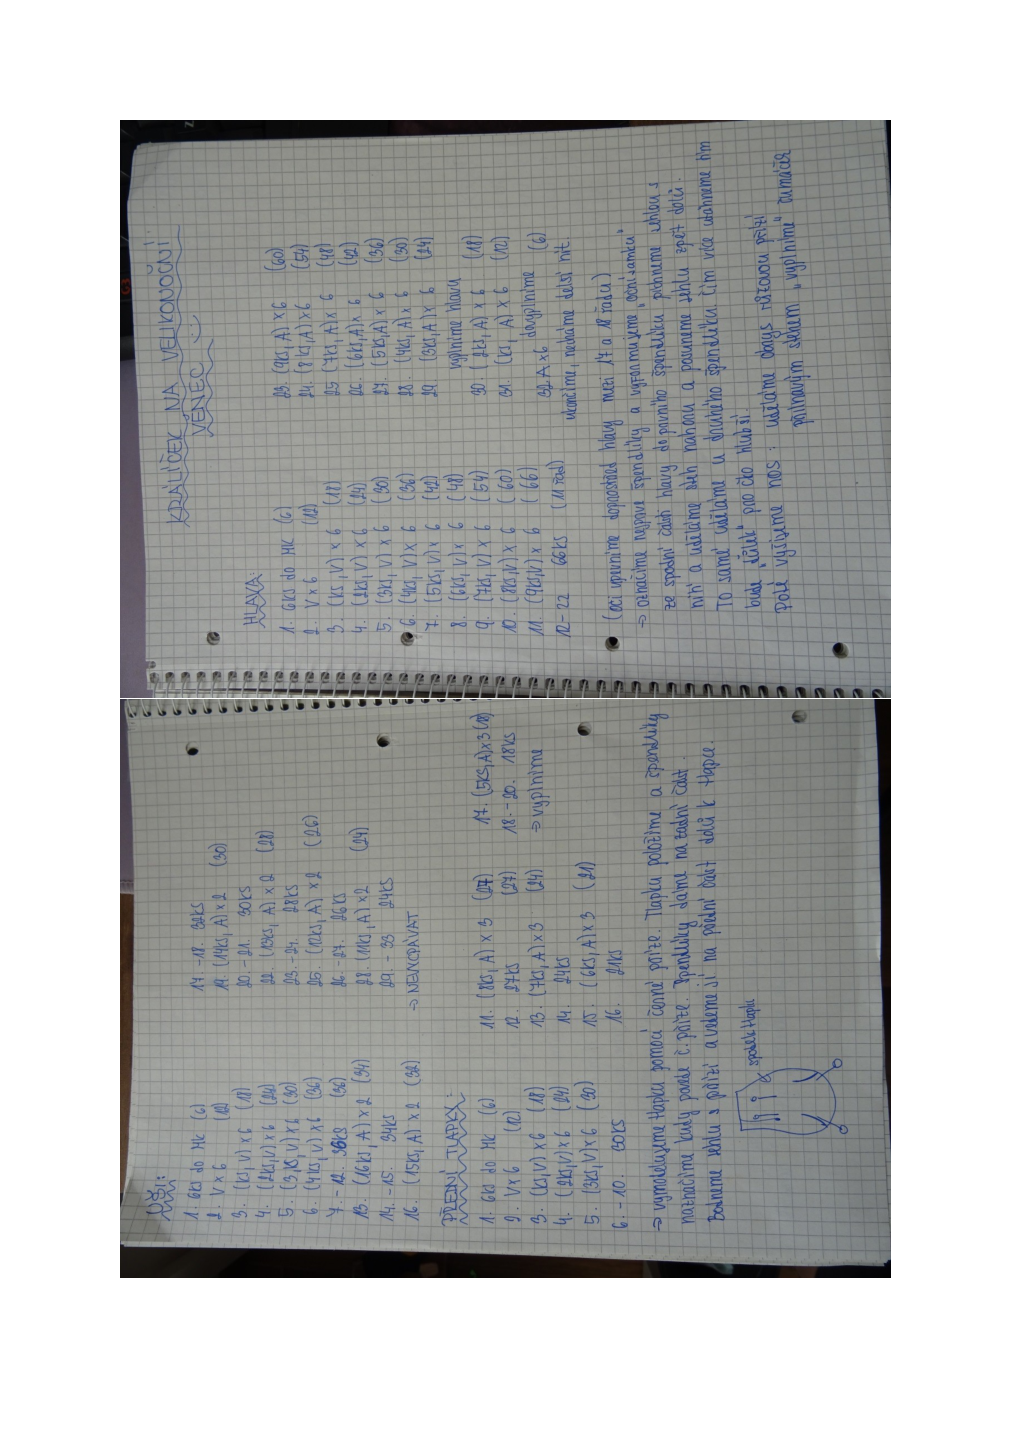 KRÁLÍČEK NA VELIKONOČNÍ
VĚNEC
HLAVA:
1. 6KS do MK (6)
2. V x 6 (12)
3. (KS, V) x 6 (18)
4. (2KS, V) x 6 (24)
5. (3KS, V) x 6 (30)
6. (4KS, V) x 6 (36)
7. (5KS, V) x 6 (42)
8. (6KS, V) x 6 (48)
9. (7KS, V) x 6 (54)
10. (8KS, V) x 6 (60)
11. (9KS, V) x 6 (66)
12-22 66KS (11 řad)
23. (9KS, A) x 6 (60)
24. (8KS, A) x 6 (54)
25 (7KS, A) x 6 (48)
26. (6KS, A) x 6 (42)
27. (5KS, A) x 6 (36)
28. (4KS, A) x 6 (30)
29 (3KS, A) x 6 (24)
vyplníme hlavu
30 (2KS, A) x 6 (18)
31. (KS, A) x 6 (12)
doplníme
32. A x 6 (6)
ukončíme, necháme delší nit
(oči upevníme doprostřed hlavy mezi 17 a 18 řadu)
→ označíme nejprve špendlíky a vyformujeme „oční jamku"
ze spodní části hlavy do prvního špendlíku píchneme jehlou s
nití a uděláme steh nahoru a posuneme jehlu zpět dolů.
To samé uděláme u druhého špendlíku čím více utáhneme tím
bude „důlek" pro oko hlubší.
Poté vyšijeme nos: uděláme obrys růžovou přízí
případným stehem „vyplníme" čumáček
UŠI:
1. 6KS do MK (6)
2. V x 6 (12)
3. (KS, V) x 6 (18)
4. (2KS, V) x 6 (24)
5. (3KS, V) x 6 (30)
6. (4KS, V) x 6 (36)
7.-12. 36KS (36)
13. (16KS, A) x 2 (34)
14.-15. 34KS
16. (15KS, A) x 2 (32)
17.-18. 32KS
19. (14KS, A) x 2 (30)
20-21. 30KS
22. (13KS, A) x 2 (28)
23.-24. 28KS
25. (12KS, A) x 2 (26)
26.-27. 26KS
28. (11KS, A) x 2 (24)
29.-33 24KS
→ NEVYCPÁVAT
PŘEDNÍ TLAPKY:
1. 6KS do MK (6)
2. V x 6 (12)
3. (KS, V) x 6 (18)
4. (2KS, V) x 6 (24)
5. (3KS, V) x 6 (30)
6.-10. 30KS
11. (8KS, A) x 3 (27)
12. 27KS (27)
13. (7KS, A) x 3 (24)
14. 24KS
15. (6KS, A) x 3 (21)
16. 21KS
17. (5KS, A) x 3 (18)
18.-20. 18KS
→ vyplníme
→ vymodelujeme tlapku pomocí černé příze. Tlapku položíme a špendlíky
naznačíme kudy povede č. příze. Špendlíky dáme na zadní část.
Bodneme jehlu s přízí a vedeme ji na přední část dolů k tlapce.
spodek tlapky